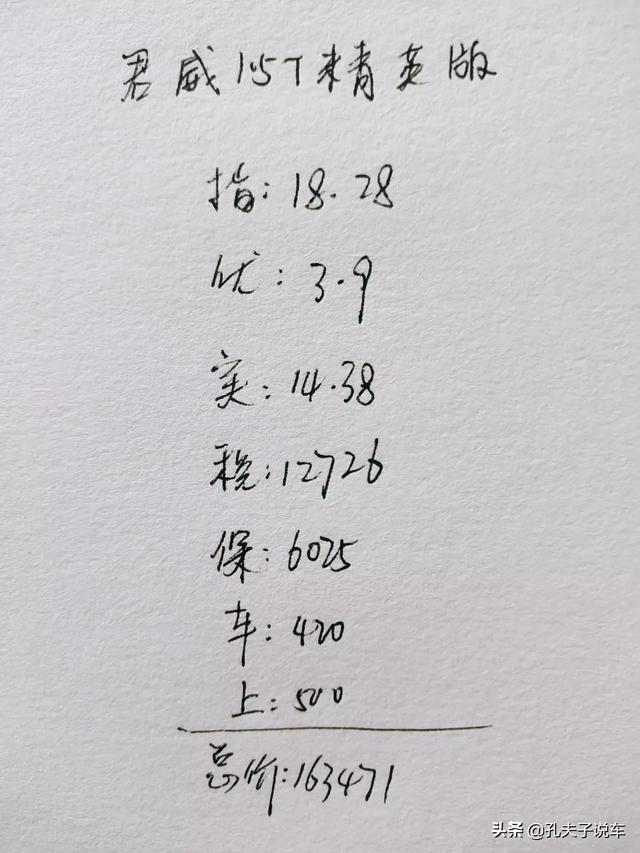 君威15T精英版
指:18.28
优:3.9
实:14.38
税:12726
保:6025
车:420
上:500
总价:163471
头条 @孔夫子说车